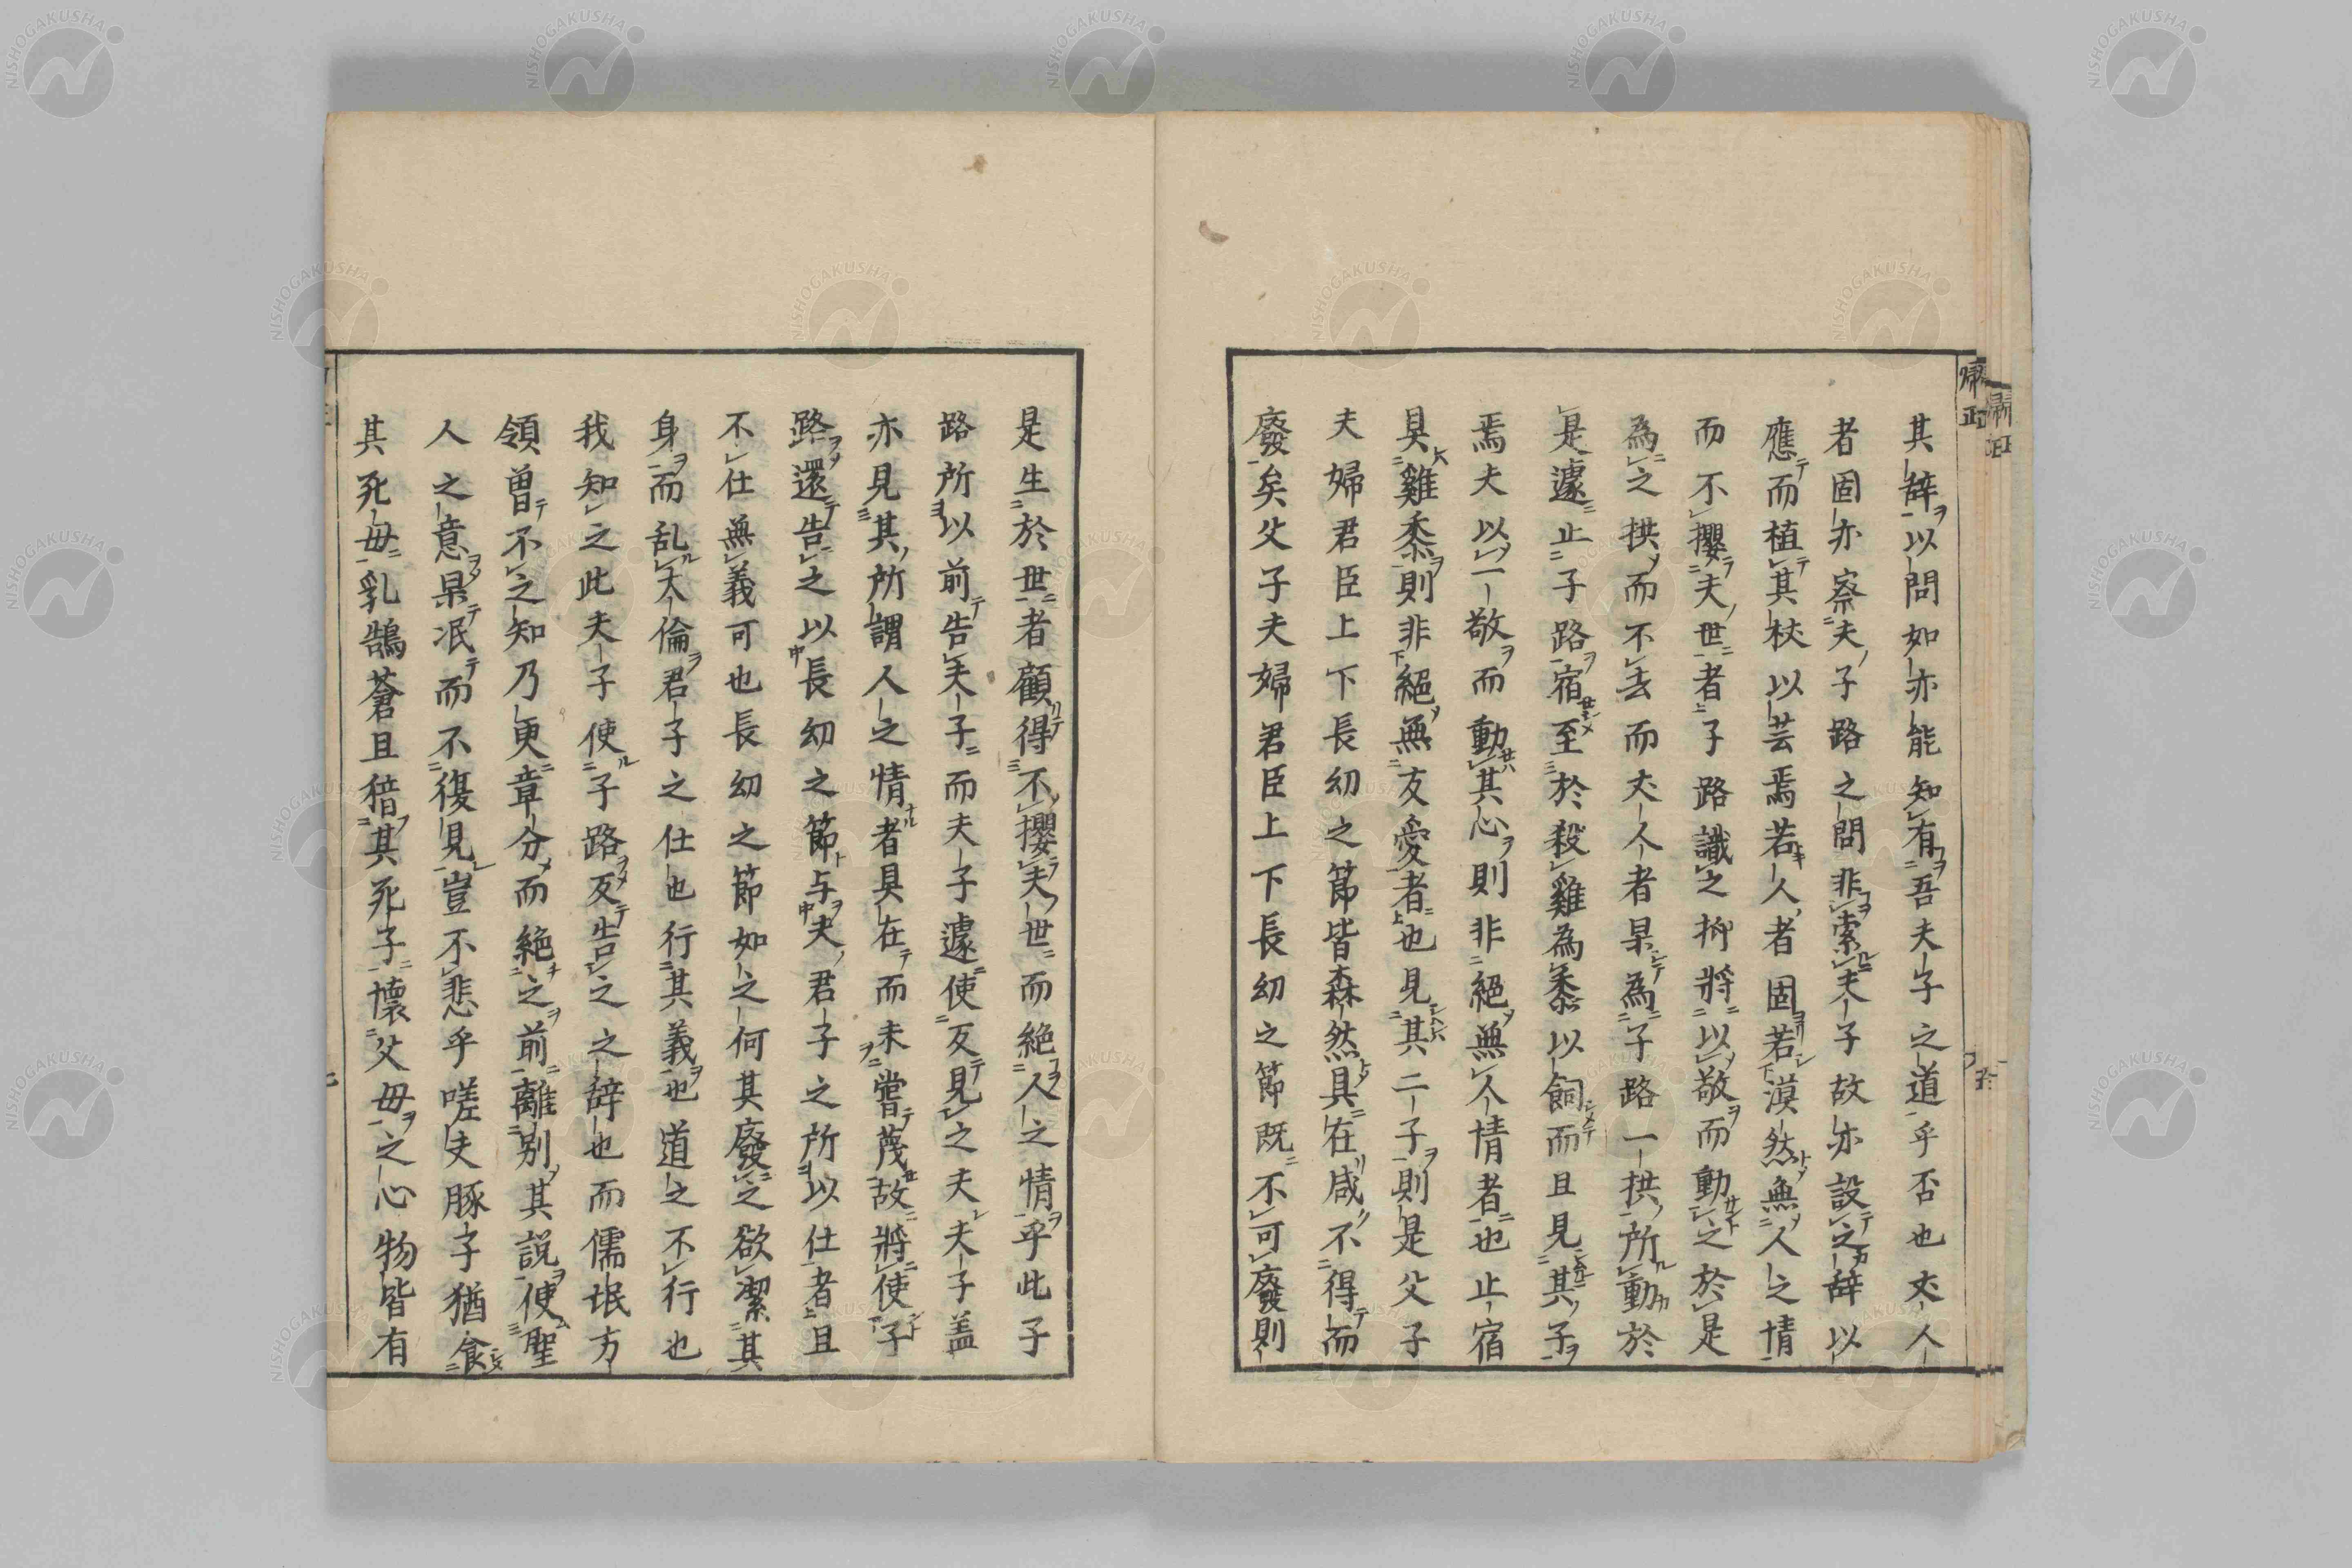 其辭以問如亦能知有吾夫子之道乎否也丈人
者固亦察夫子路之問非索夫子故亦設之辭以
應而植其杖以芸焉若人者固若漠然無人之情
而不攖夫世者子路識之抑將以敬而動之於是
為之拱而不去而丈人者杲為子路一拱所動於
是遽止子路宿至於殺雞為黍以飼而且見其子
焉夫以一敬而動其心則非絕無人情者也止宿
具雞黍則非絕無友愛者也見其二子則是父子
夫婦君臣上下長幼之節皆森然具在咸不得而
廢矣父子夫婦君臣上下長幼之節既不可廢則
是生於世者顧得不攖夫世而絕人之情乎此子
路所以前告夫子而夫子遽使反見之夫夫子盖
亦見其所謂人之情者具在而未嘗蔑故將使子
路還告之以長幼之節与夫君子之所以仕者且
不仕無義可也長幼之節如之何其廢之欲潔其
身而乱大倫君子之仕也行其義也道之不行也
我知之此夫子使子路反告之之辭也而儒氓方
領曽不之知乃更章分而絶之前離别其説使聖
人之意杲泯而不復見豈不悲乎嗟夫豚子猶食
其死母乳鵠蒼且稽其死子懷父母之心物皆有
歸正
NISHOGAKUSHA